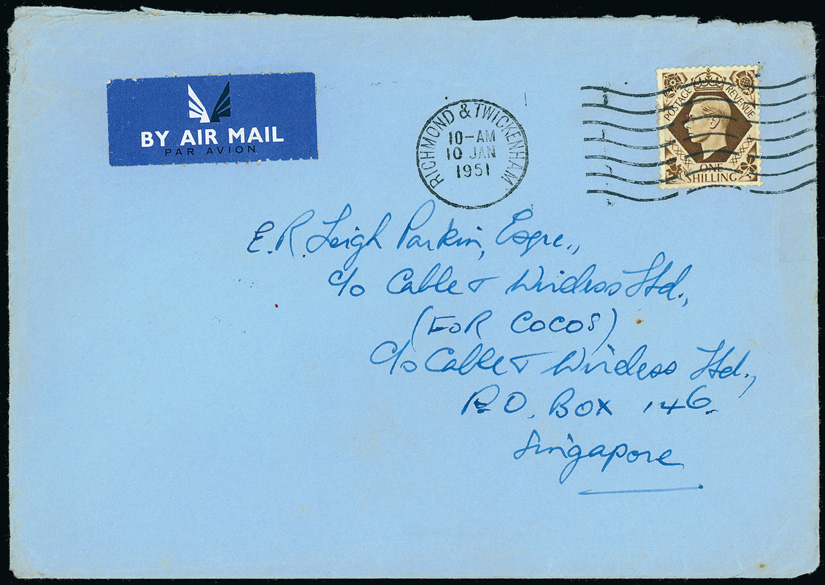 BY AIR MAIL
PAR AVION
RICHMOND & TWICKENHAM
10-AM
10 JAN
1951
POSTAGE REVENUE
ONE
SHILLING
E.R. Leigh Parkin, Esqre.,
c/o Cable & Wireless Ltd.,
(FOR COCOS)
c/o Cable & Wireless Ltd.,
P.O. BOX 146.
Singapore